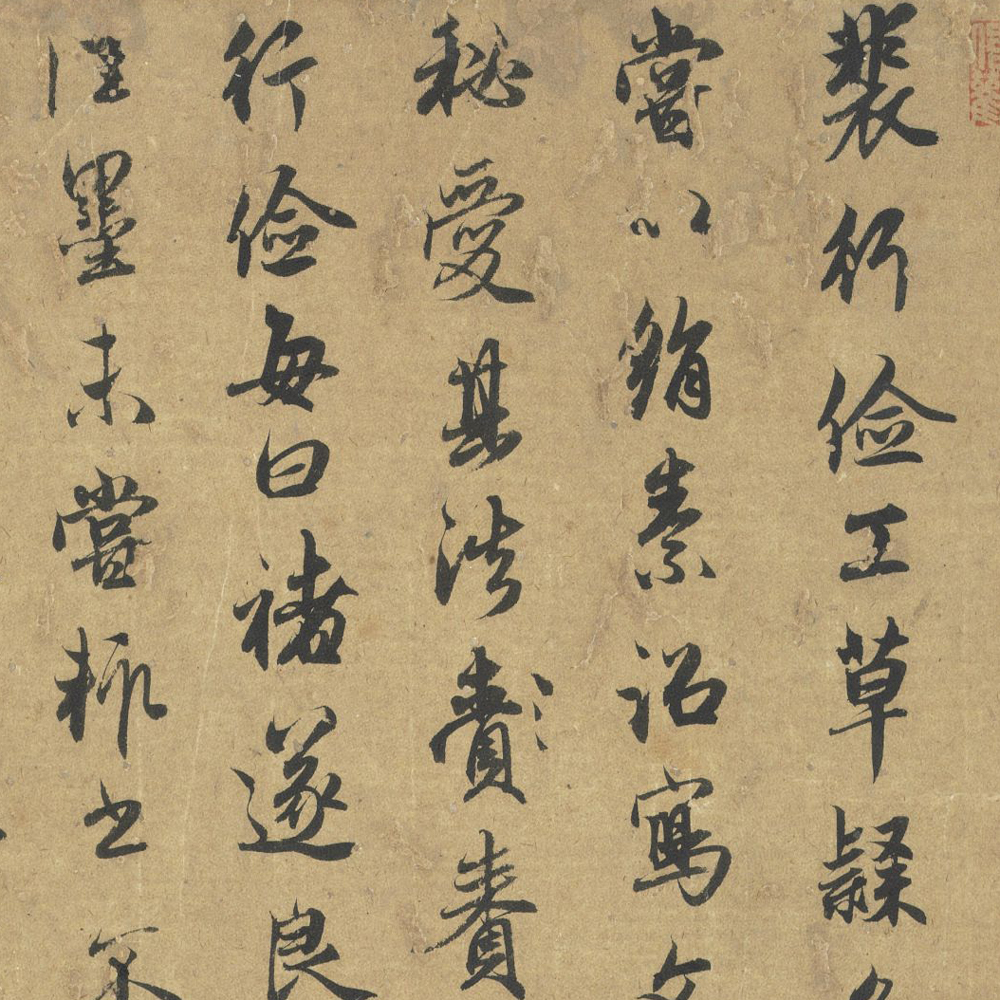 裴行儉工草隸
嘗以絹素詔寫文
秘愛其法賚賚
行儉每曰褚遂良
佳墨未嘗輒書不